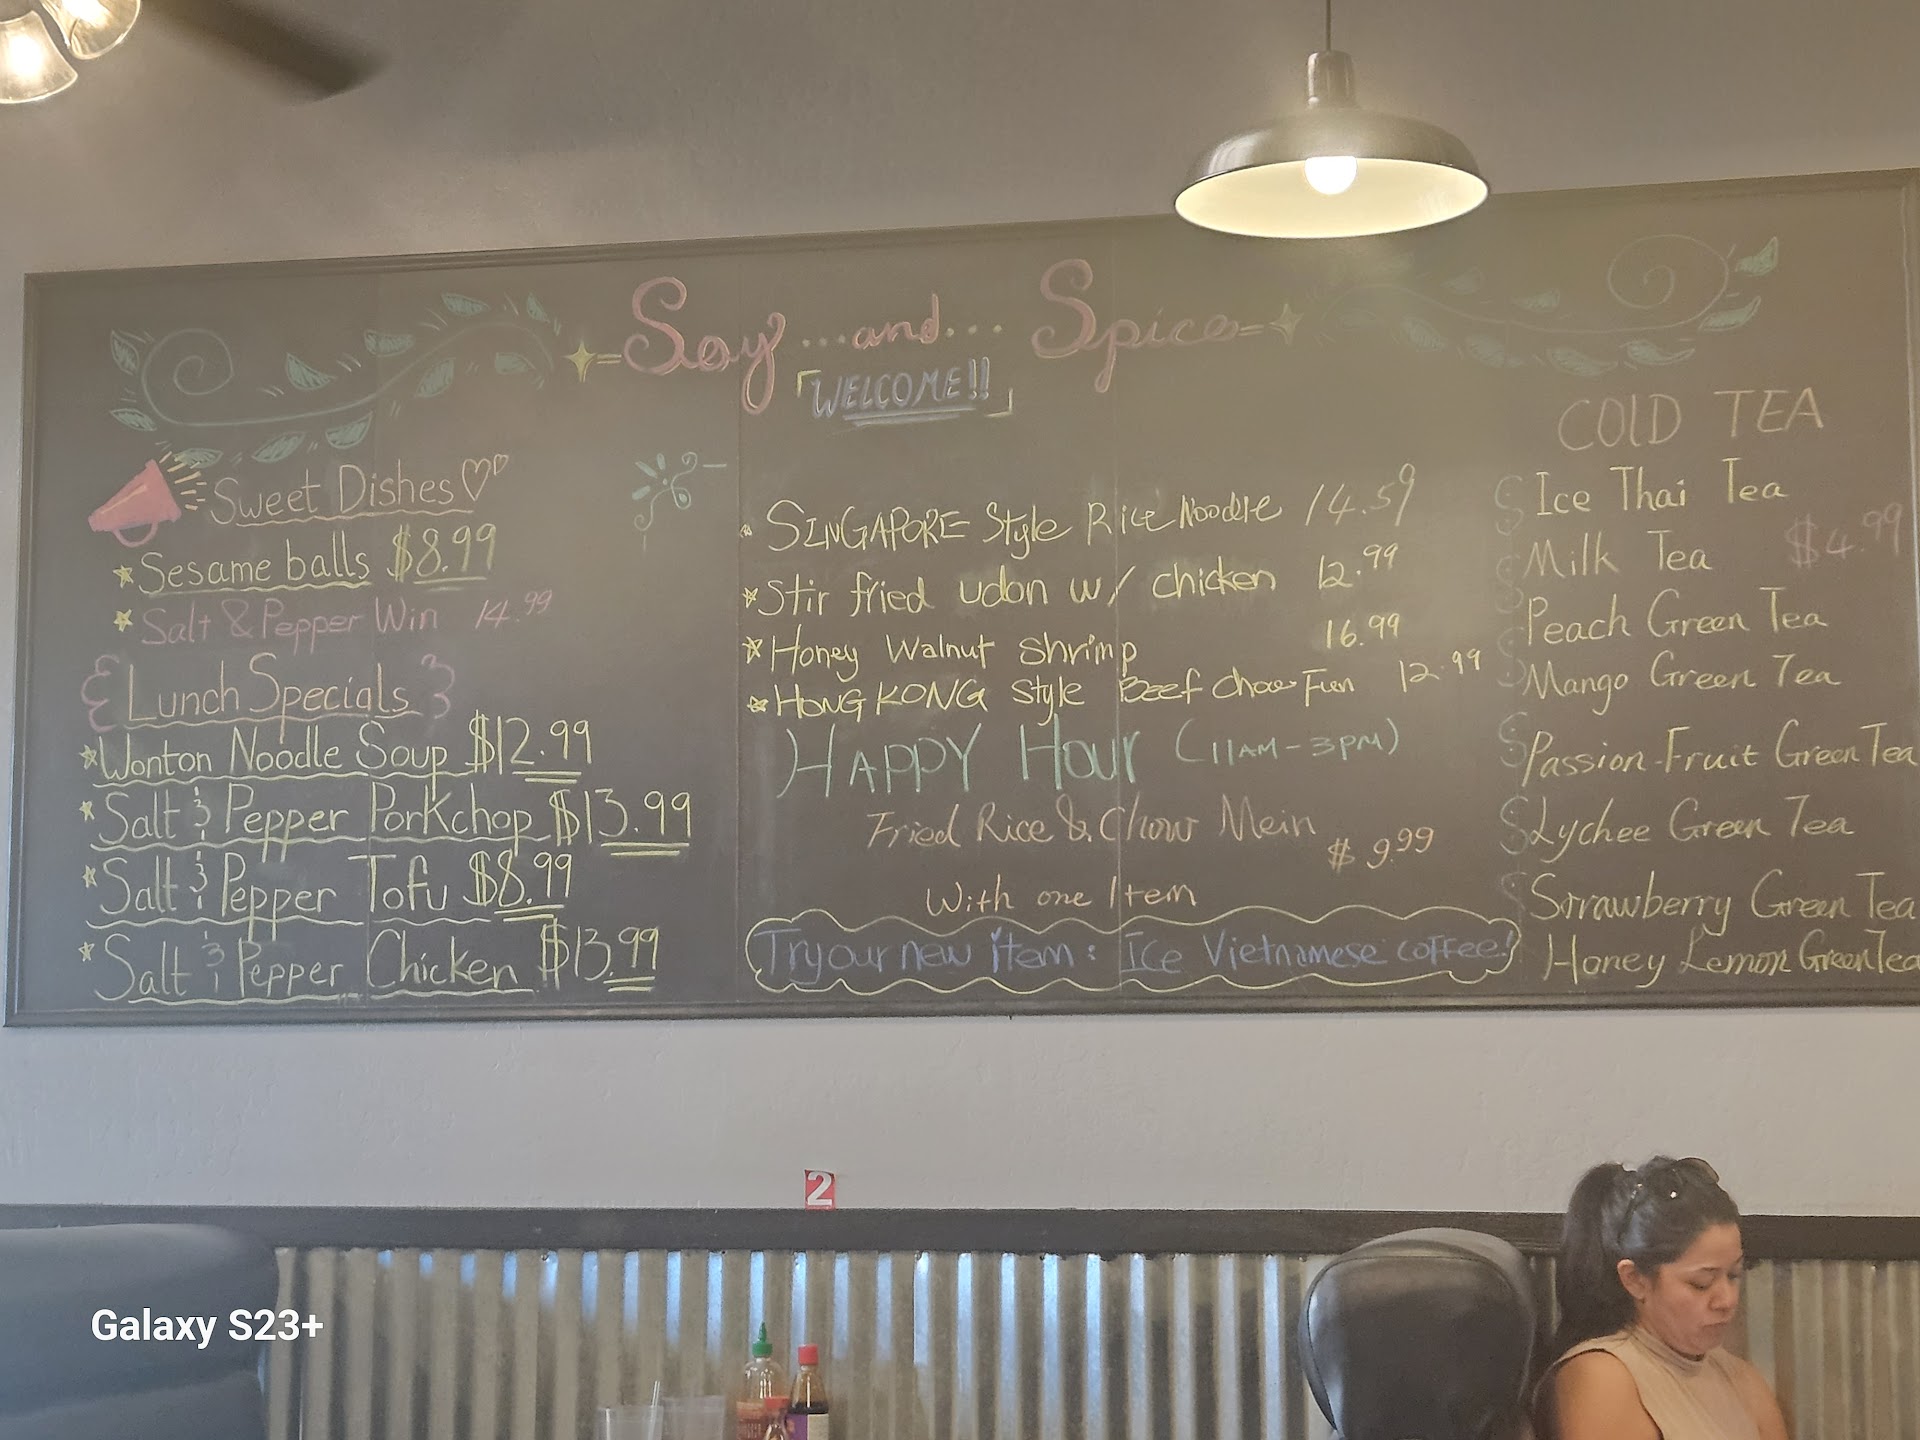 Soy ...and... Spice
WELCOME!!
Sweet Dishes
Sesame balls $8.99
Salt & Pepper Win 14.99
Lunch Specials
Wonton Noodle Soup $12.99
Salt & Pepper Porkchop $13.99
Salt & Pepper Tofu $8.99
Salt & Pepper Chicken $13.99
SINGAPORE Style Rice Noodle 14.59
Stir fried udon w/ chicken 12.99
Honey Walnut Shrimp 16.99
HONG KONG Style Beef Chow Fun 12.99
HAPPY Hour (11AM-3PM)
Fried Rice & Chow Mein
$9.99
With one Item
Try our new item: ICE Vietnamese coffee!
COLD TEA
Ice Thai Tea
Milk Tea $4.99
Peach Green Tea
Mango Green Tea
Passion-Fruit Green Tea
Lychee Green Tea
Strawberry Green Tea
Honey Lemon Green Tea
2
Galaxy S23+